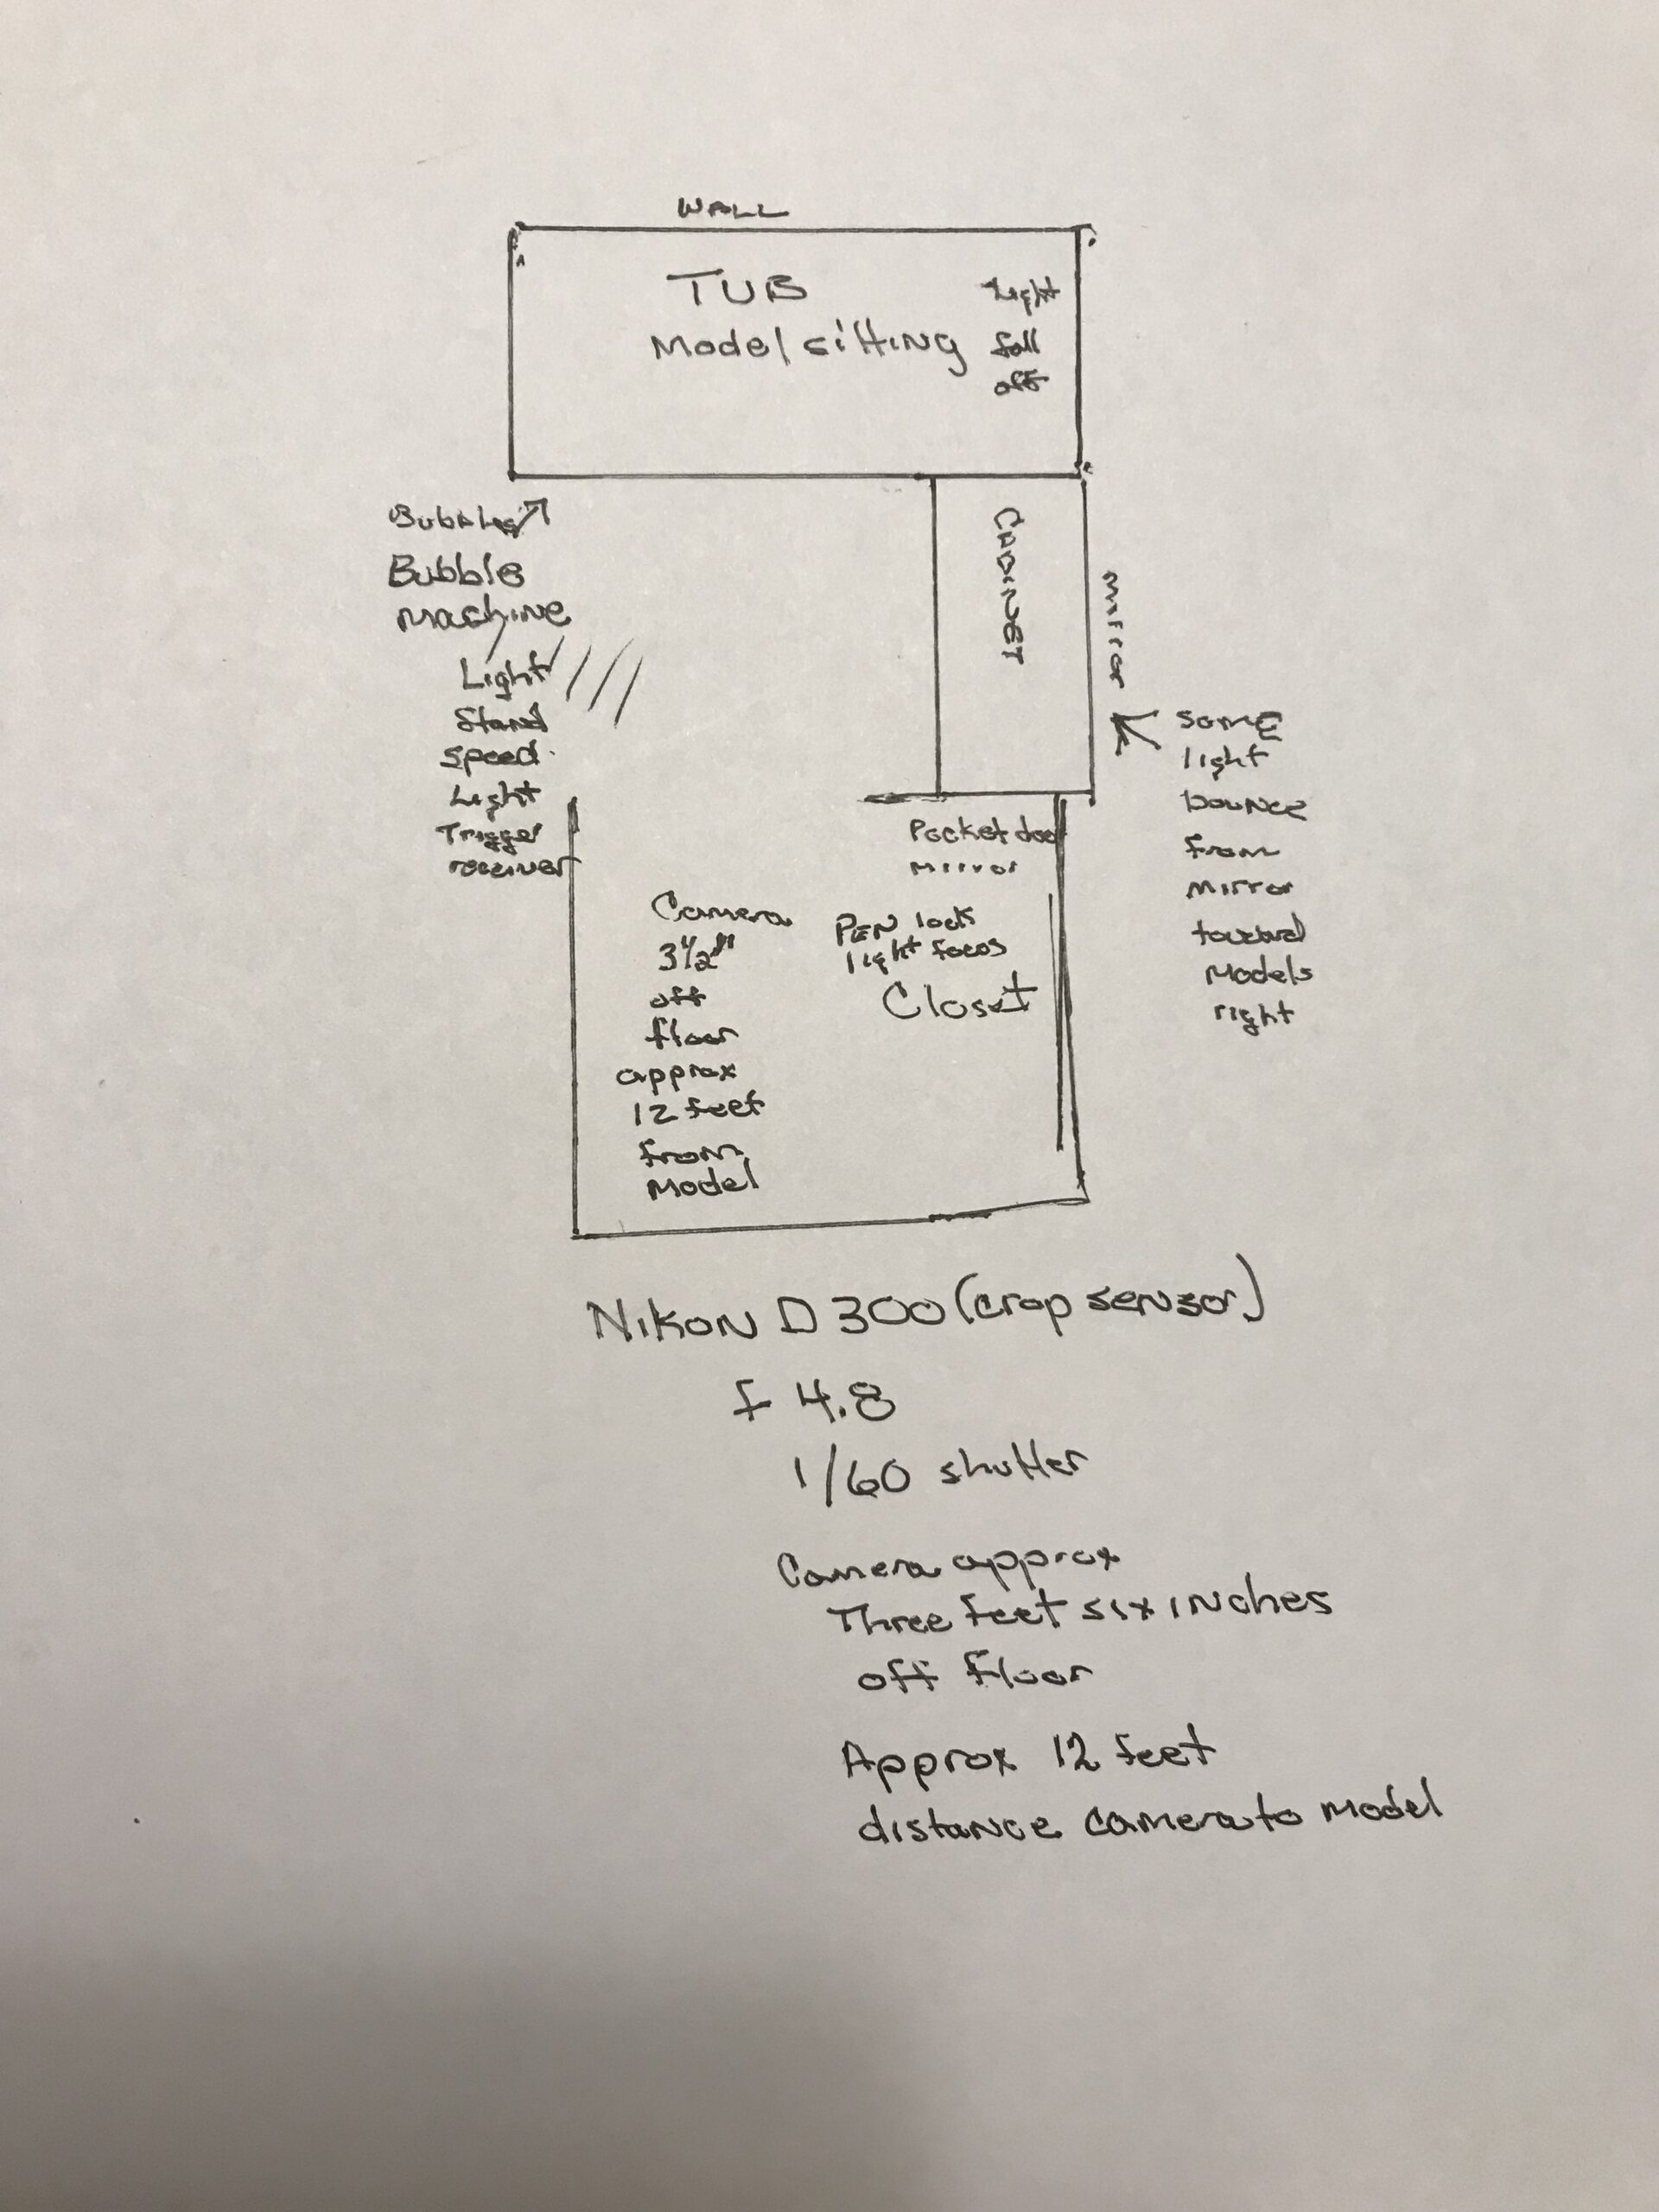 WALL
TUB
Model sitting
Light
fall
off
Bubbles
Bubble
machine
Light
Stand
speed
Light
Trigger
receiver
CABINET
mirror
some
light
bounce
from
mirror
toward
Models
right
Pocket door
mirror
Camera
3 1/2"
off
floor
approx
12 feet
from
Model
PEN lock
light focos
Closet
NIKON D300 (crop sensor)
f 4.8
1/60 shutter
Camera approx
Three feet six inches
off floor
Approx 12 feet
distance camera to model